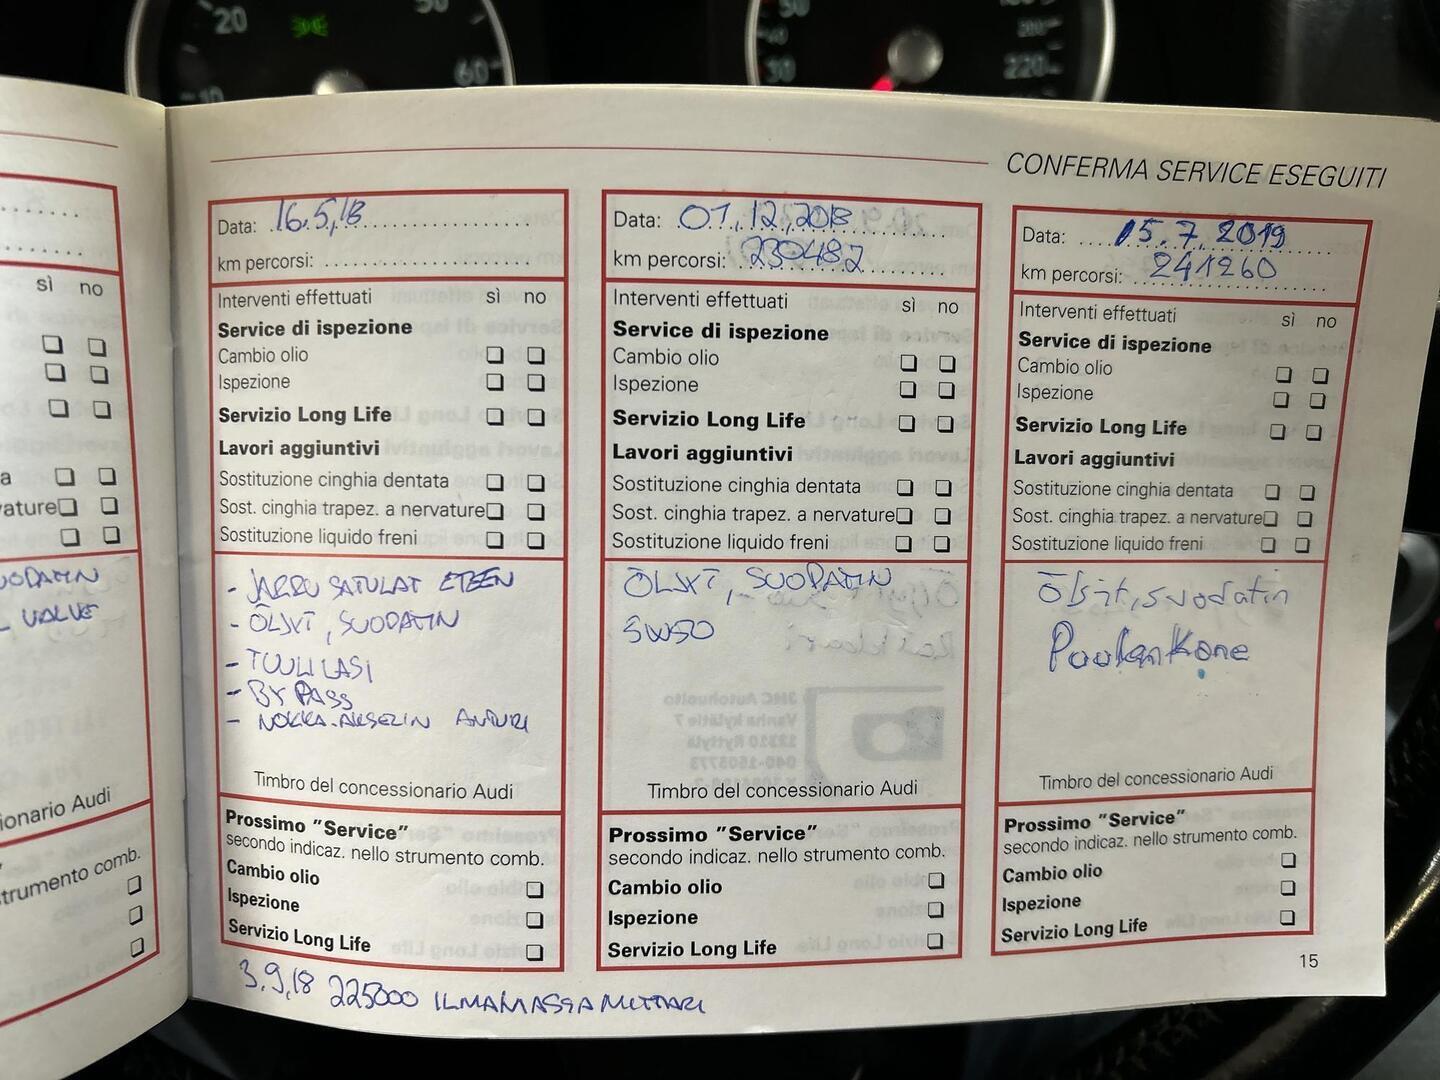 20
50
60
10
50
40
30
200
220
CONFERMA SERVICE ESEGUITI
sì no
a
vature
SUODATIN
L VALVE
ionario Audi
strumento comb.
Data: 16.5,18
km percorsi:
Interventi effettuati sì no
Service di ispezione
Cambio olio
Ispezione
Servizio Long Life
Lavori aggiuntivi
Sostituzione cinghia dentata
Sost. cinghia trapez. a nervature
Sostituzione liquido freni
- JARRU SATULAT ETEEN
- ÖLJYT, SUODATIN
- TUULILASI
- BY PASS
- NOKKA-AKSELIN ANTURI
Timbro del concessionario Audi
Prossimo "Service"
secondo indicaz. nello strumento comb.
Cambio olio
Ispezione
Servizio Long Life
Data: 01,12,2018
km percorsi: 230482
Interventi effettuati sì no
Service di ispezione
Cambio olio
Ispezione
Servizio Long Life
Lavori aggiuntivi
Sostituzione cinghia dentata
Sost. cinghia trapez. a nervature
Sostituzione liquido freni
ÖLJYT, SUODATIN
5W50
Timbro del concessionario Audi
Prossimo "Service"
secondo indicaz. nello strumento comb.
Cambio olio
Ispezione
Servizio Long Life
Data: 15.7.2019
km percorsi: 241260
Interventi effettuati sì no
Service di ispezione
Cambio olio
Ispezione
Servizio Long Life
Lavori aggiuntivi
Sostituzione cinghia dentata
Sost. cinghia trapez. a nervature
Sostituzione liquido freni
Öljyt, suodatin
Timbro del concessionario Audi
Prossimo "Service"
secondo indicaz. nello strumento comb.
Cambio olio
Ispezione
Servizio Long Life
3,9,18 225000 ILMAMASSAMITTARI
15